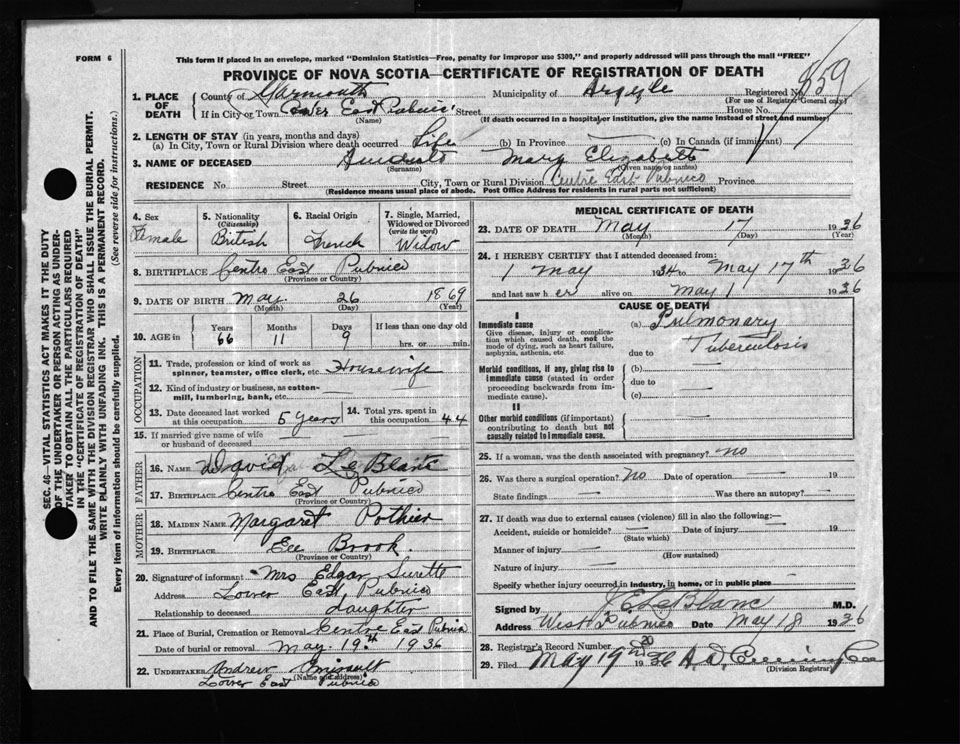 FORM 6
This form if placed in an envelope, marked "Dominion Statistics—Free, penalty for improper use $300," and properly addressed will pass through the mail "FREE"
PROVINCE OF NOVA SCOTIA—CERTIFICATE OF REGISTRATION OF DEATH
859
1. PLACE OF DEATH
County of Yarmouth Municipality of Argyle Registered No.
(For use of Registrar General only)
If in City or Town Center East Pubnico Street House No.
(Name) (If death occurred in a hospital or institution, give the name instead of street and number)
2. LENGTH OF STAY (in years, months and days)
(a) In City, Town or Rural Division where death occurred Life (b) In Province — (c) In Canada (if immigrant)
3. NAME OF DECEASED Mary Elizabeth
(Surname) (Given name or names)
RESIDENCE No. Street City, Town or Rural Division Centre East Pubnico Province
(Residence means usual place of abode. Post Office Address for residents in rural parts not sufficient)
4. Sex Female
5. Nationality (Citizenship) British
6. Racial Origin French
7. Single, Married, Widowed or Divorced (write the word) Widow
8. BIRTHPLACE Centre East Pubnico
(Province or Country)
9. DATE OF BIRTH May 26 1869
(Month) (Day) (Year)
10. AGE in Years 66 Months 11 Days 9 If less than one day old hrs. or min.
OCCUPATION
11. Trade, profession or kind of work as spinner, teamster, office clerk, etc. Housewife
12. Kind of industry or business, as cotton-mill, lumbering, bank, etc.
13. Date deceased last worked at this occupation 5 years
14. Total yrs. spent in this occupation 44
15. If married give name of wife or husband of deceased
FATHER
16. NAME David LeBlanc
17. BIRTHPLACE Centre East Pubnico
(Province or Country)
MOTHER
18. MAIDEN NAME Margaret Pothier
19. BIRTHPLACE Eel Brook
(Province or Country)
20. Signature of informant Mrs Edgar Surette
Address Lower East Pubnico
Relationship to deceased daughter
21. Place of Burial, Cremation or Removal Centre East Pubnico
Date of burial or removal May 19th 1936
22. UNDERTAKER Andrew
(Name and address)
Lower East Pubnico
MEDICAL CERTIFICATE OF DEATH
23. DATE OF DEATH May 17 1936
(Month) (Day) (Year)
24. I HEREBY CERTIFY that I attended deceased from:
1 May 1934 to May 17th 1936
and last saw her alive on May 1 1936
CAUSE OF DEATH
I
Immediate cause
Give disease, injury or complication which caused death, not the mode of dying, such as heart failure, asphyxia, asthenia, etc.
(a) Pulmonary Tuberculosis
due to
Morbid conditions, if any, giving rise to immediate cause (stated in order proceeding backwards from immediate cause).
(b) —
due to —
(c) —
II
Other morbid conditions (if important) contributing to death but not causally related to immediate cause.
25. If a woman, was the death associated with pregnancy? no
26. Was there a surgical operation? no Date of operation 19
State findings — Was there an autopsy? —
27. If death was due to external causes (violence) fill in also the following:—
Accident, suicide or homicide? — Date of injury — 19
(State which)
Manner of injury —
(How sustained)
Nature of injury —
Specify whether injury occurred in industry, in home, or in public place —
Signed by J E LeBlanc M.D.
Address West Pubnico Date May 18 1936
28. Registrar's Record Number 20
29. Filed May 19th 1936
(Division Registrar)
SEC. 46—VITAL STATISTICS ACT MAKES IT THE DUTY
OF THE UNDERTAKER OR PERSON ACTING AS UNDER-
TAKER TO OBTAIN ALL THE PARTICULARS REQUIRED
IN THE "CERTIFICATE OF REGISTRATION OF DEATH"
AND TO FILE THE SAME WITH THE DIVISION REGISTRAR WHO SHALL ISSUE THE BURIAL PERMIT.
WRITE PLAINLY WITH UNFADING INK. THIS IS A PERMANENT RECORD.
Every item of information should be carefully supplied. (See reverse side for instructions.)